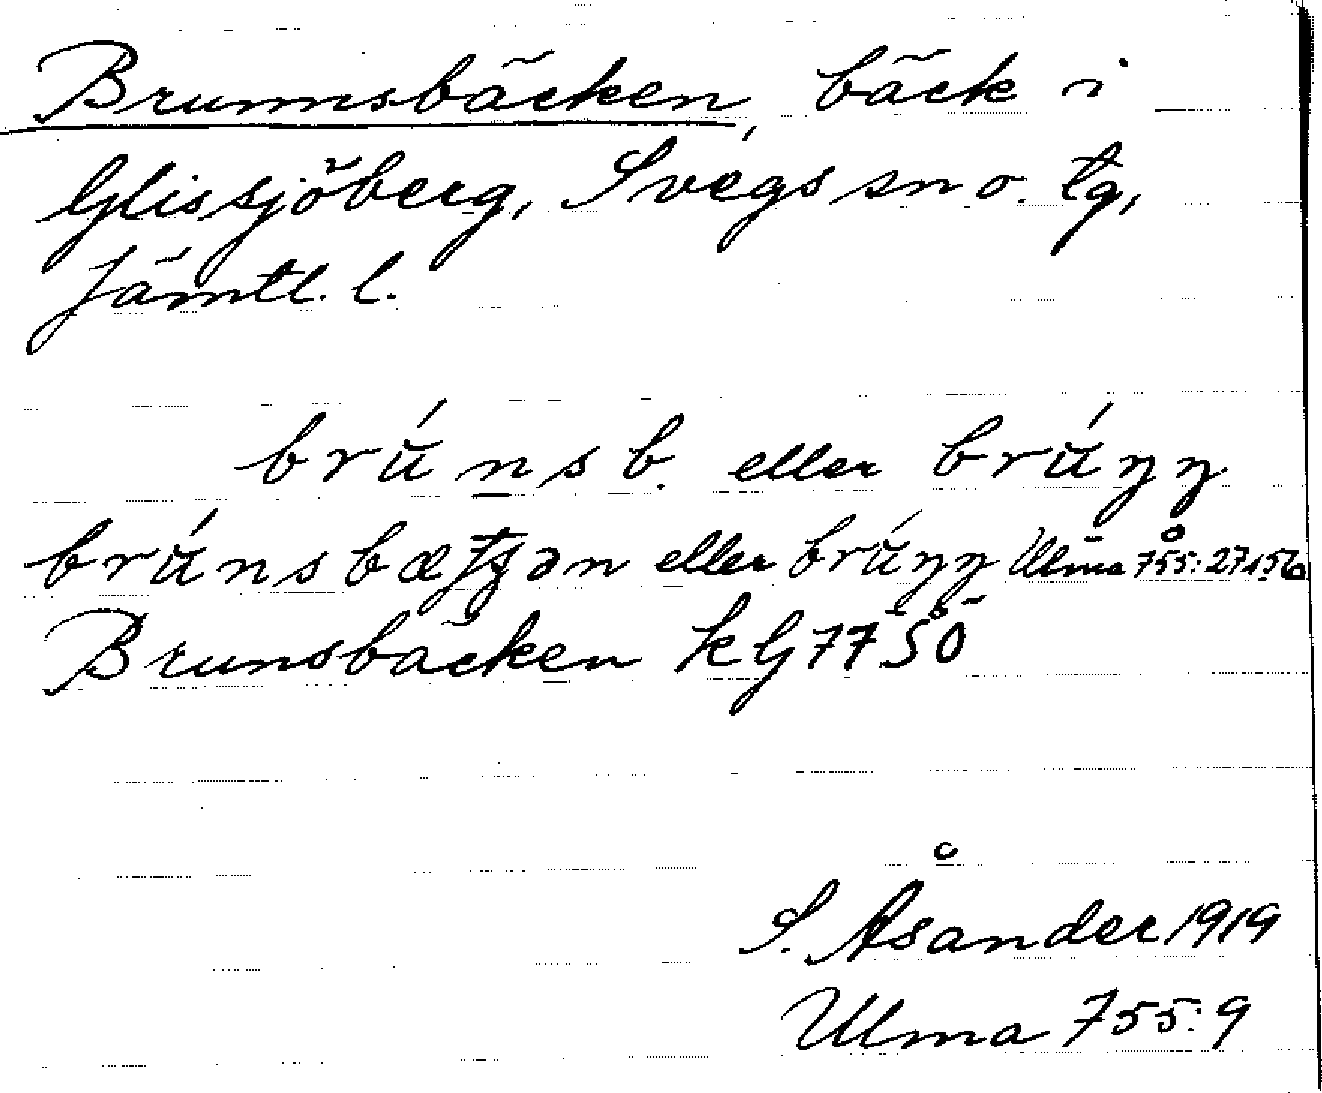 Brunnsbäcken, bäck i
Glissjöberg, Svegs sn o. tg,
Jämtl. l.
brúnsb. eller brúŋŋ
brúns bæ eller brúŋŋ Ulma 755: 27,156
Brunsbäcken kG 7750
S. Åsander 1919
Ulma 755: 9